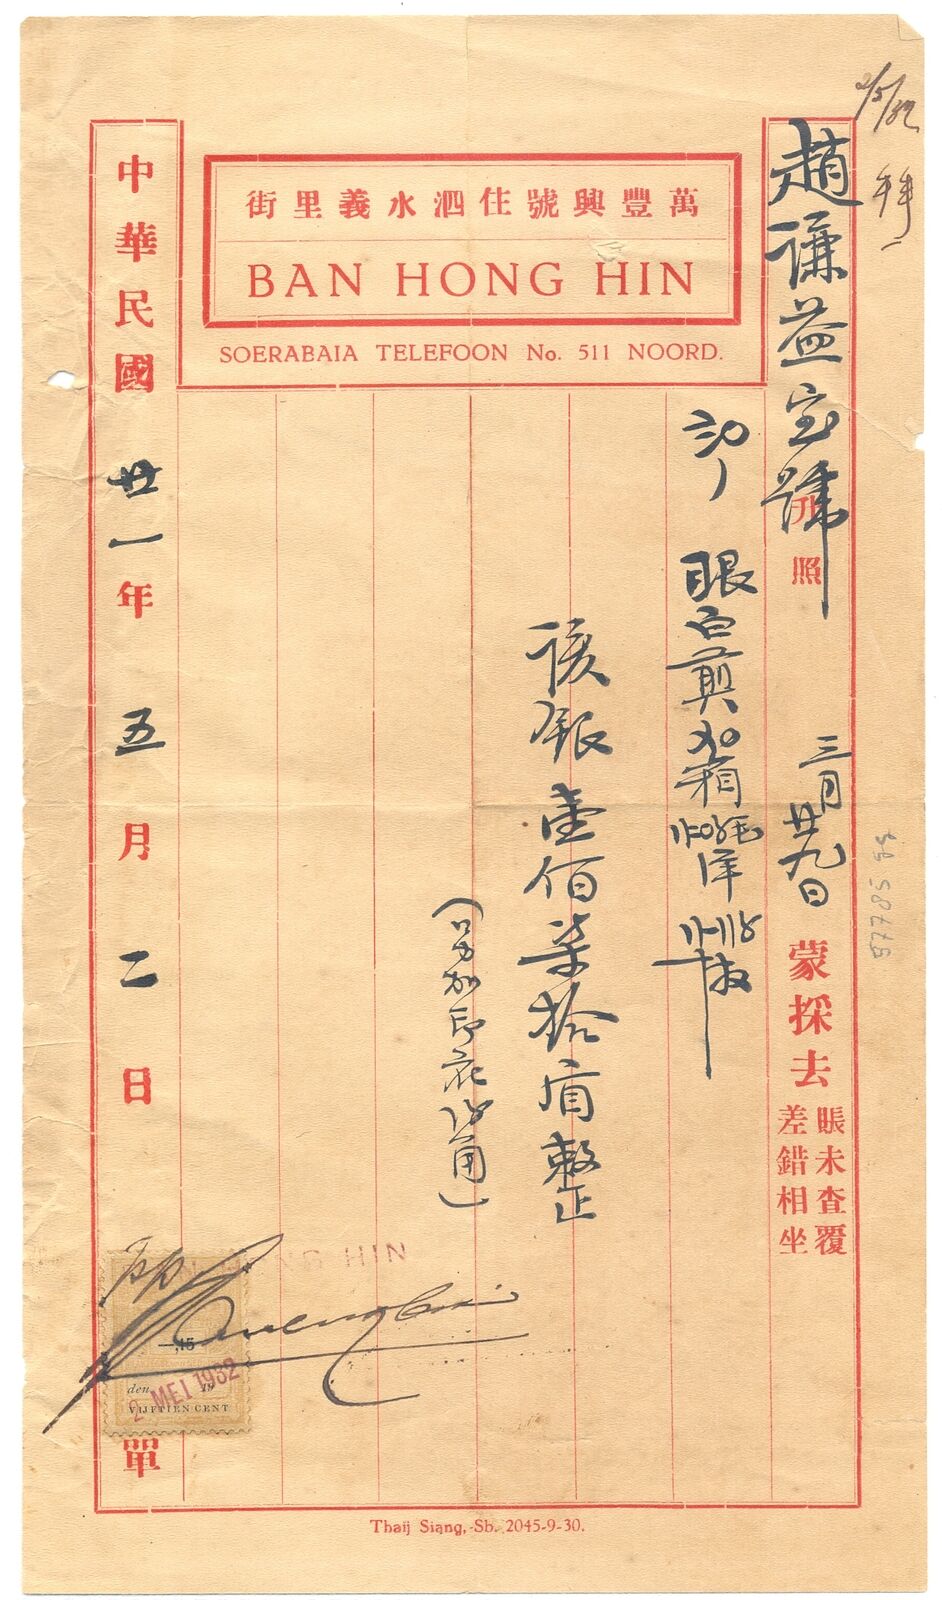 萬豐興號住泗水義里街
BAN HONG HIN
SOERABAIA TELEFOON No. 511 NOORD.
2/5/32
趙謙益宝號 升照 三月廿九日 蒙採去
賬未查覆
差錯相坐
眼白剪 箱
該銀壹佰柒拾盾整
(另加印花 角)
中華民國廿一年五月二日 單
HIN
—,15
den 19
2 MEI 1932
VIJFTIEN CENT
Thaij Siang, Sb. 2045-9-30.